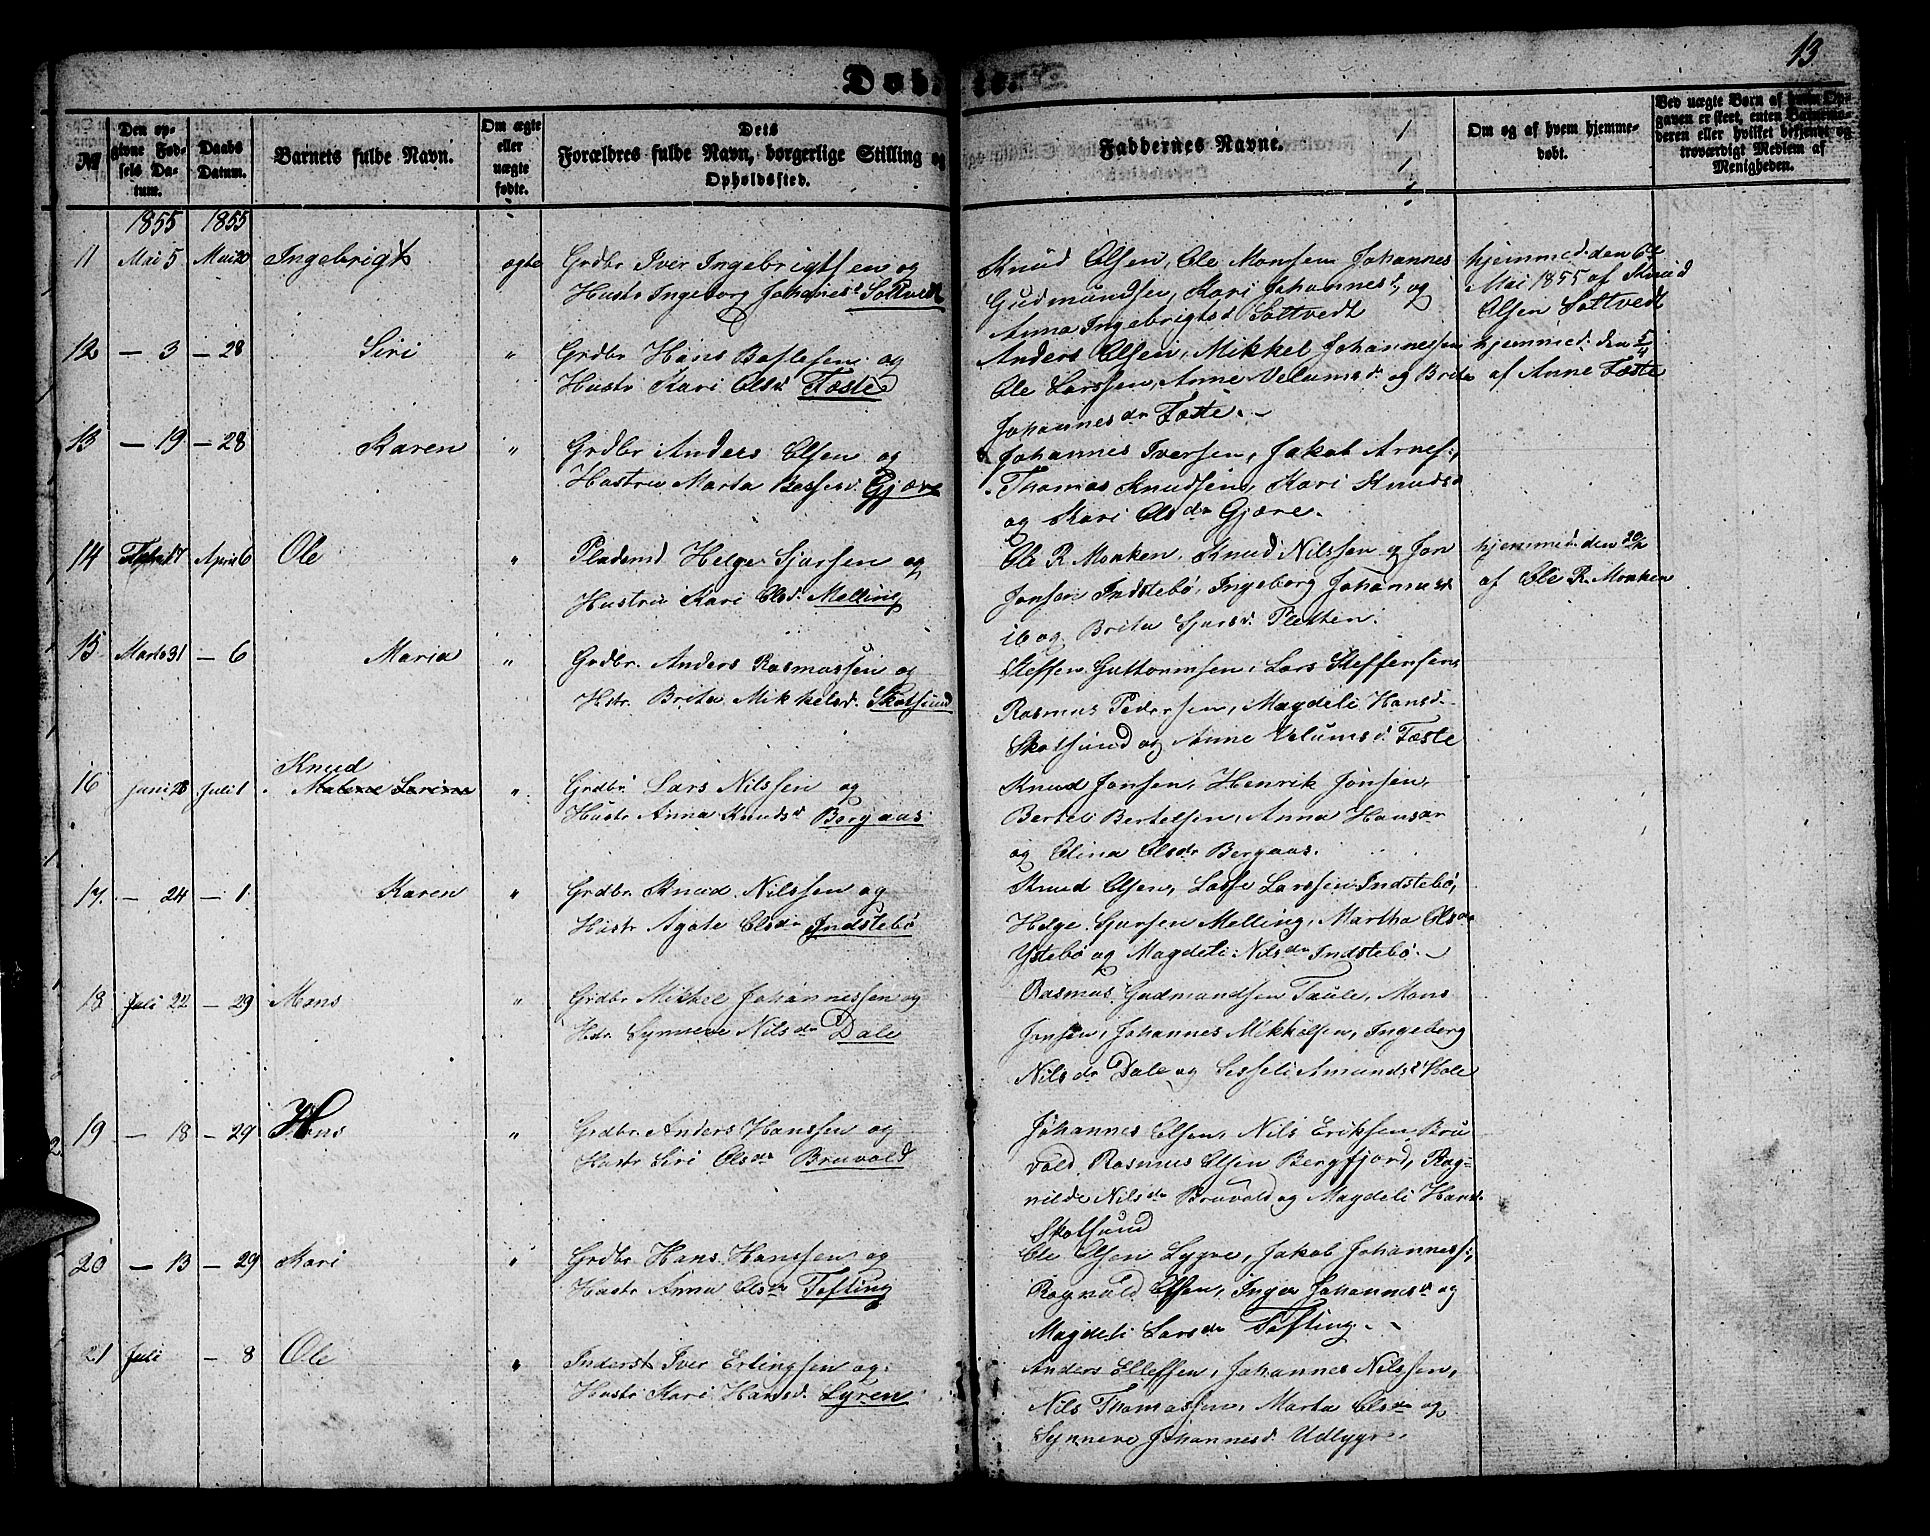 13
Døbte.
No
Den opgivne Fødsels Datum.
Daabs Datum.
Barnets fulde Navn.
Om ægte eller uægte fødte.
Dets Forældres fulde Navn, borgerlige Stilling og Opholdssted.
Faddernes Navne.
Om og af hvem hjemmedøbt.
Ved uægte Børn af hvem Opgaven er skeet, enten Barnemoderen eller hvilket bekjendt og troværdigt Medlem af Menigheden.
1855 1855
11 Mai 5 Mai 20 Ingebrigt ægte Grdbr Iver Ingebrigtsen og
Hustr Ingeborg Johannesd Sottvedt
Knud Olsen, Ole Monsen Johannes
Gudmundsen, Kari Johannesd, og
Anna Ingebrigtsd Sottvedt
hjemmed: den 6te
Mai 1855 af Knud
Olsen Sottvedt
12 — 3 — 28 Siri " Grdbr Hans og
Hustr Kari Olsd Fæste
Anders Olsen, Mikkel Johannessen
Ole Larssen, Anne Velumsd og Brita
Johannesdr Fæste. —
hjemmed: den 5/4
af Anne Fæste
13 — 19 — 28 Karen " Grdbr Anders Olsen og
Hustru Marta Gjære
Johannes Iversen, Jakob Arnes:,
Thomas Knudsen, Kari Knudsd
og Kari Olsdr Gjære.
14 April 6 Ole " Pladsmd Helge Sjursen og
Hustru Kari Olsd. Melling
Ole R. Monken, Knud Nilssen og Jon
Jonsen Indstebø, Ingeborg Johannesd
ib og Brita Sjursd. Pletten.
hjemmed: den
af Ole R. Monken
15 Marts 31 — 6 Maria " Grdbr. Anders Rasmussen og
Hstr. Brita Mikkelsd. Skotsund
Steffen Guttormsen, Lars Steffensen
Rasmus Pedersen, Magdeli Hansd.
Skotsund og Anne Velumsd. Fæste
16 Juni 28 Juli 1 Knud
Malene Larine " Grdbr. Lars Nilssen og
Hustr Anna Knudsd Bergaas
Knud Jonsen, Henrik Jonsen,
Bertel Bertelsen, Anna Hansdr
og Olina Olsdr Bergaas.
17. — 24 — 1 Karen " Grdbr Knud Nilssen og
Hustr Agate Olsdr Indstebø
Knud Olsen, Lasse Larssen Indstebø,
Helge Sjursen Melling, Martha Olsdr
Ystebø og Magdeli Nilsdr Indstebø. —
18 Juli 22 — 29 Mons " Grdbr Mikkel Johannessen og
Hstr. Synneve Nilsdr Dale
Rasmus Gudmundsen Taule, Mons
Jonsen, Johannes Mikkelsen, Ingeborg
Nilsdr Dale og Sesseli Amundsd Hole
19 — 18 — 29 Hans " Grdbr. Anders Hanssen og
Hustr Siri Olsdr Bruvold
Johannes Olsen, Nils Eriksen Bru
vold, Rasmus Olsen Bergfjord, Rag=
nilde Nilsdr Bruvold og Magdeli Hansd.
Skotsund
20 — 13 — 29 Kari " Grdbr Hans Hanssen og
Hustr Anna Olsdr Tofting
Ole Olsen Lygre, Jakob Johanness:,
Ragvald Olsen, Inger Johannesd og
Magdeli Larsdr Tofting. —
21 Juli — 8 Ole " Inderst Iver Erlingsen og
Hustr Kari Hansd. Lyren
Anders Elleffen, Johannes Nilssen,
Nils Thomassen, Marta Olsdr og
Synneve Johannesd. Udlygre.